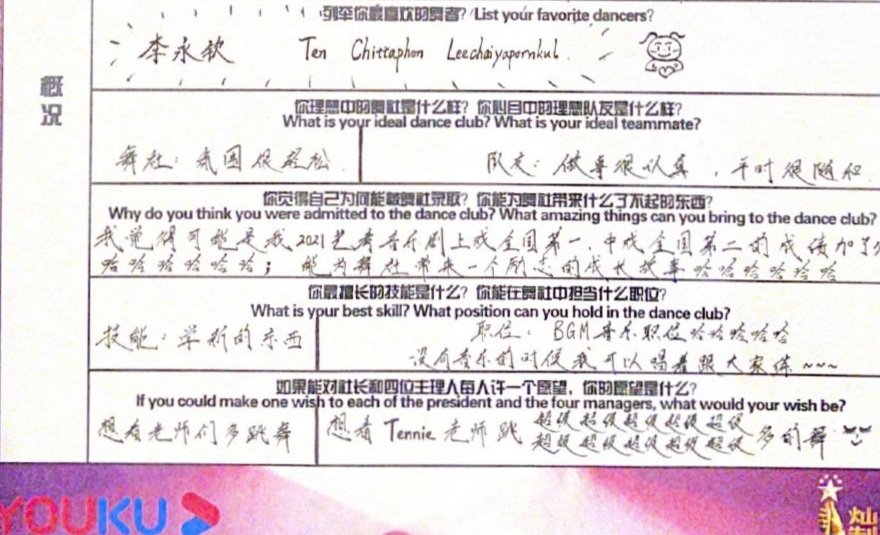 列举你最喜欢的舞者? List your favorite dancers?
李永钦 Ten Chittaphon Leechaiyapornkul
概况
你理想中的舞社是什么样? 你心目中的理想队友是什么样?
What is your ideal dance club? What is your ideal teammate?
舞社: 氛围很轻松
队友: 做事很认真, 平时很随和
你觉得自己为何能被舞社录取? 你能为舞社带来什么了不起的东西?
Why do you think you were admitted to the dance club? What amazing things can you bring to the dance club?
我觉得可能是我2021艺考音乐剧上戏全国第一、中戏全国第二的成绩加了
哈哈哈哈哈哈; 能为舞社带来一个励志的成长故事哈哈哈哈哈哈
你最擅长的技能是什么? 你能在舞社中担当什么职位?
What is your best skill? What position can you hold in the dance club?
技能: 学新的东西
职位: BGM音乐职位哈哈哈哈哈
没有音乐的时候我可以唱着跟大家练~~~
如果能对社长和四位主理人每人许一个愿望, 你的愿望是什么?
If you could make one wish to each of the president and the four managers, what would your wish be?
想看老师们多跳舞
想看Tennie老师跳超级超级超级超级超级
超级超级超级超级超级多的舞
YOUKU
灿